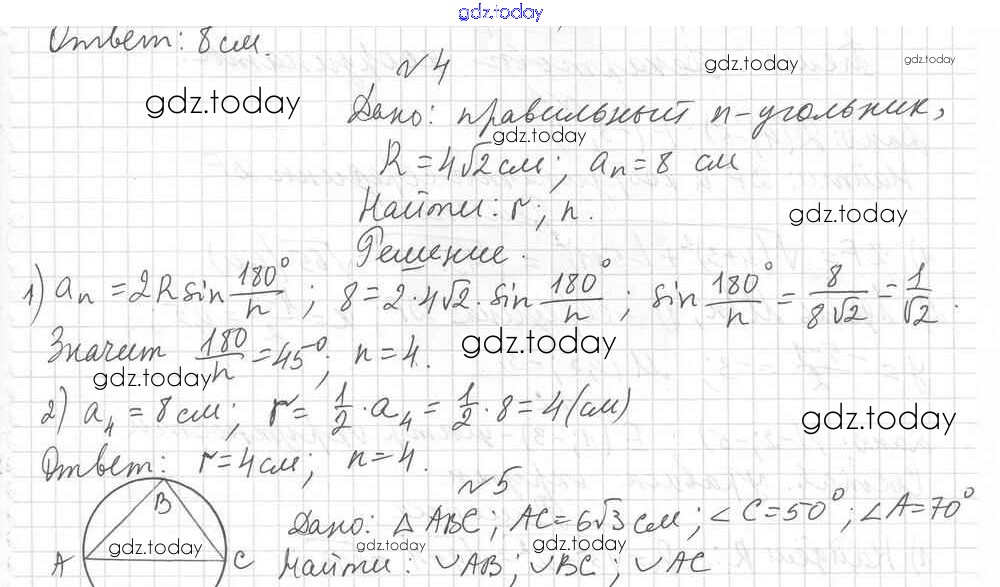 gdz.today
Ответ: 8 см.
№4
gdz.today
gdz.today
gdz.today
Дано: правильный n-угольник,
gdz.today
R = 4√2 см; aₙ = 8 см
Найти: r; n.
gdz.today
Решение.
1) aₙ = 2R sin 180°/n; 8 = 2·4√2·sin 180°/n; sin 180°/n = 8/8√2 = 1/√2.
gdz.today
Значит 180/n = 45°; n = 4.
gdz.today
2) a₄ = 8 см; r = 1/2·a₄ = 1/2·8 = 4 (см)
gdz.today
Ответ: r = 4 см; n = 4.
№5
B
Дано: △ABC; AC = 6√3 см; ∠C = 50°; ∠A = 70°
gdz.today
gdz.today
gdz.today
A
C
Найти: ◡AB; ◡BC; ◡AC